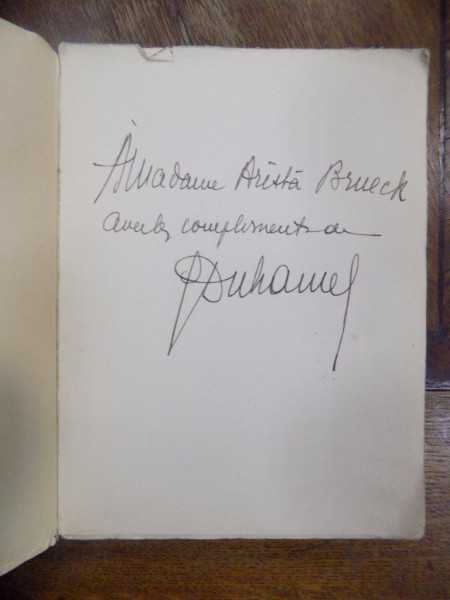 à Madame Aristà Brueck
avec les compliments de
GDuhamel